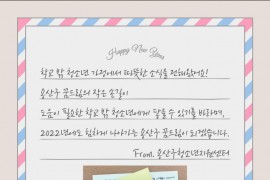 Happy New Year
학교 밖 청소년 가정에서 따뜻한 소식을 전해왔어요!
용산구 꿈드림의 작은 손길이
도움이 필요한 학교 밖 청소년에게 닿을 수 있기를 바라며,
2022년에도 힘차게 나아가는 용산구 꿈드림이 되겠습니다.
From. 용산구청소년지원센터